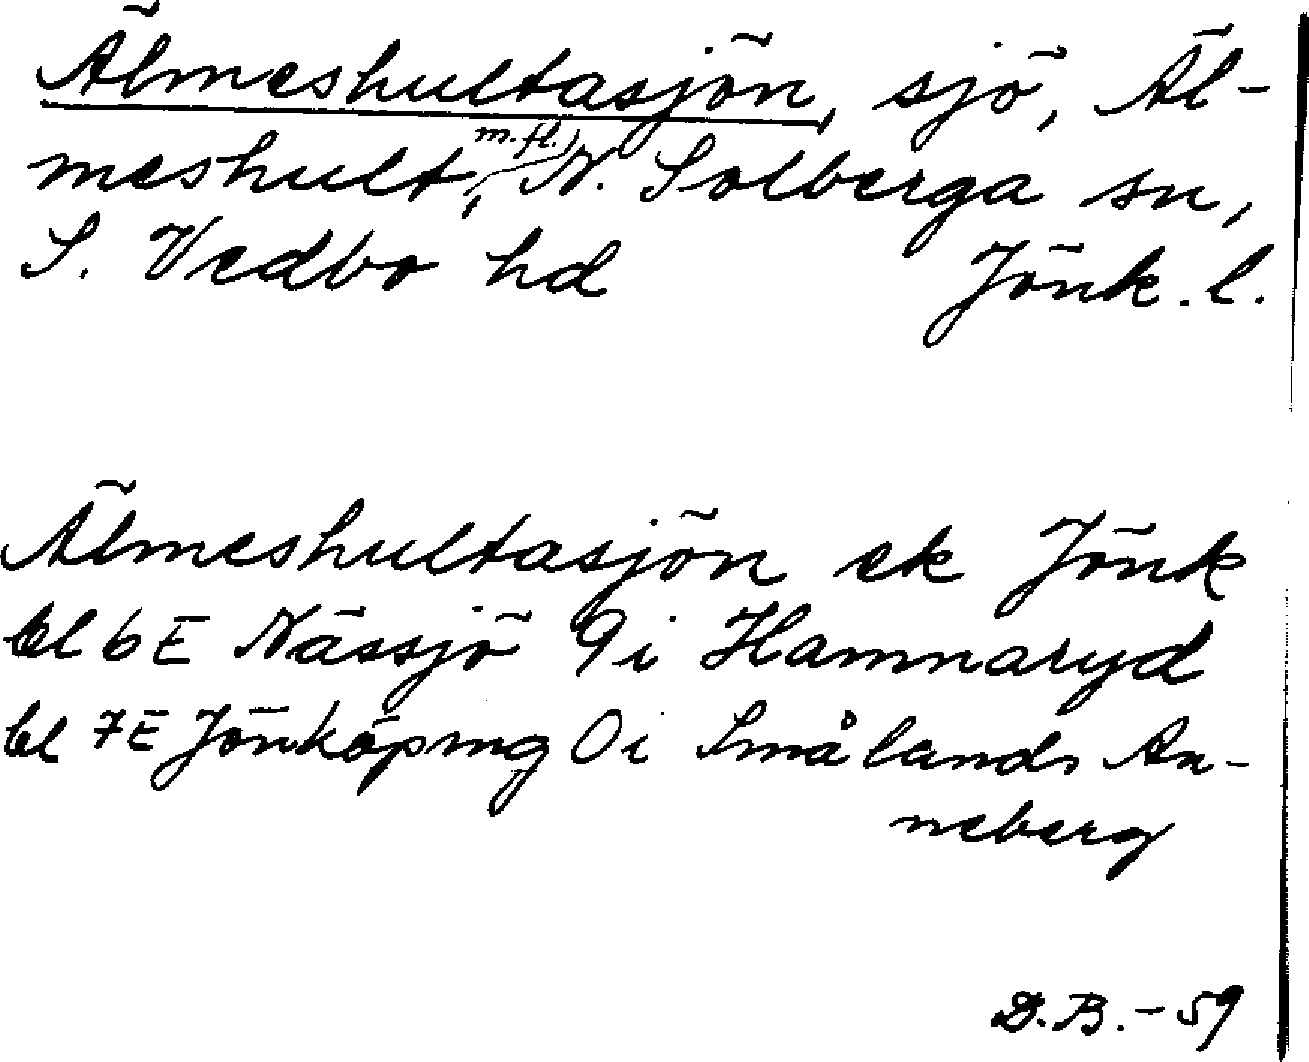 Älmeshultasjön, sjö, Äl-
meshult, m.fl. N. Solberga sn,
S. Vedbo hd Jönk. l.
Älmeshultasjön ek Jönk
bl 6E Nässjö 9i Hamnaryd
bl 7E Jönköping 0i Smålands An-
neberg
D.B. - 59